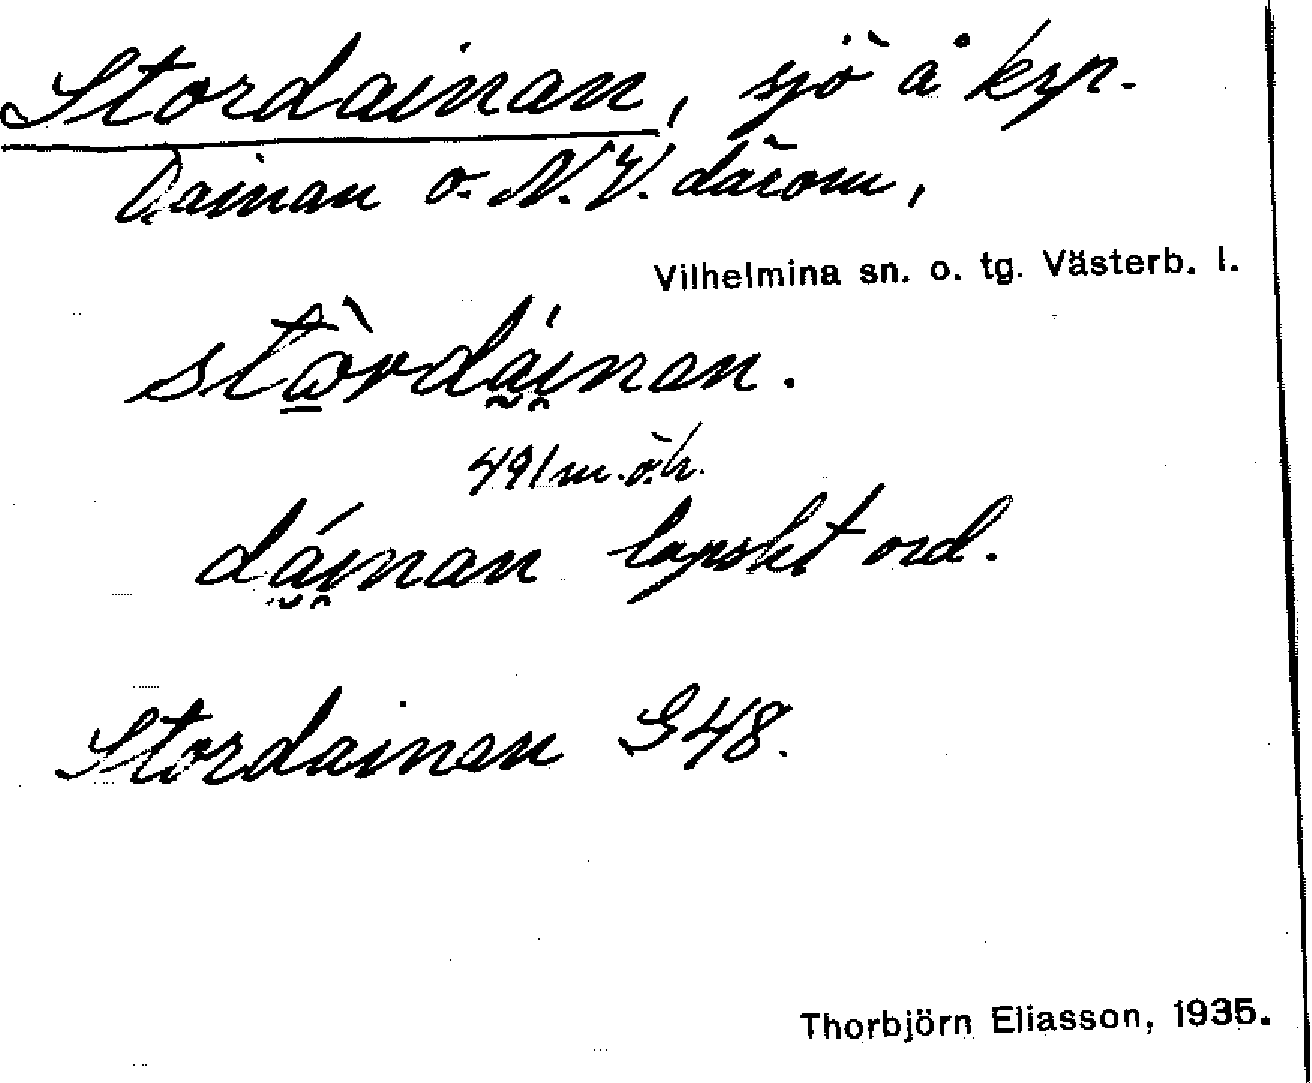 Stordainan, sjö å kyp.
Dainan o. N.V. därom,
Vilhelmina sn. o. tg. Västerb. l.
stò̱rdáinan.
491 m.ö.h.
dáinan lapskt ord.
Stordainan G48.
Thorbjörn Eliasson, 1935.